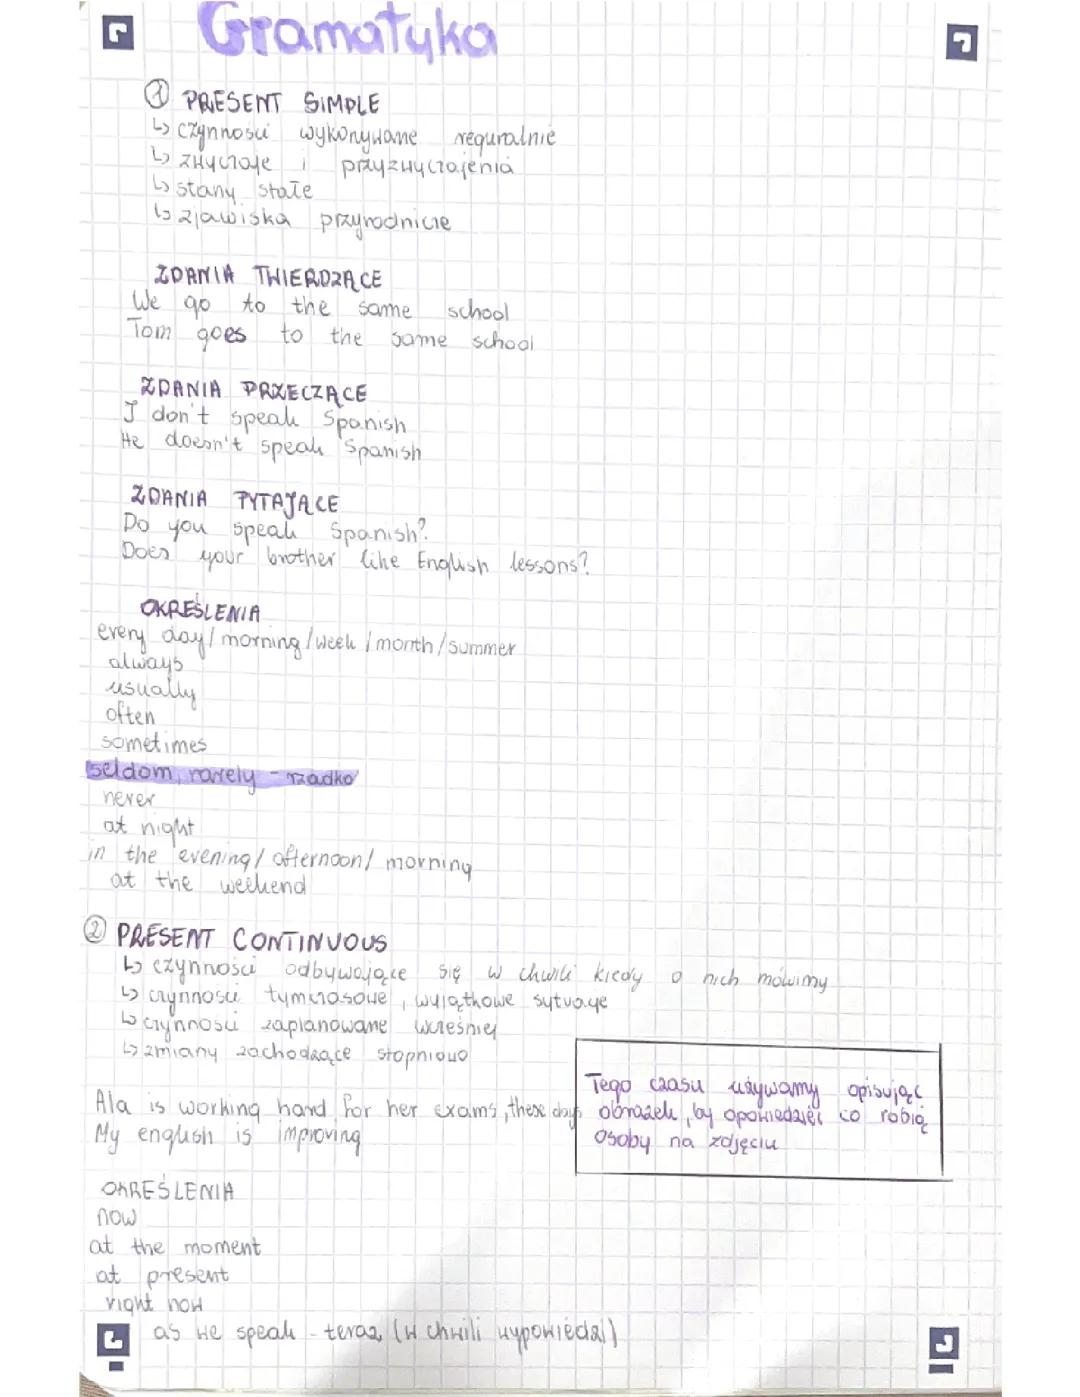 Gramatyka
① PRESENT SIMPLE
↳ czynności wykonywane reguralnie
↳ zwyczaje i przyzwyczajenia
↳ stany stałe
↳ zjawiska przyrodnicze
ZDANIA TWIERDZĄCE
We go to the same school
Tom goes to the same school
ZDANIA PRZECZĄCE
I don't speak Spanish
He doesn't speak Spanish
ZDANIA PYTAJĄCE
Do you speak Spanish?
Does your brother like English lessons?
OKREŚLENIA
every day/morning/week/month/summer
always
usually
often
sometimes
seldom, rarely - rzadko
never
at night
in the evening/afternoon/morning
at the weekend
② PRESENT CONTINUOUS
↳ czynności odbywające się w chwili kiedy o nich mówimy
↳ czynności tymczasowe, wyjątkowe sytuacje
↳ czynności zaplanowane wcześniej
↳ zmiany zachodzące stopniowo
Ala is working hard for her exams, these days
My english is improving
Tego czasu używamy opisując
obrazek, by opowiedzieć co robią
osoby na zdjęciu
OKREŚLENIA
now
at the moment
at present
right now
as we speak - teraz (w chwili wypowiedzi)